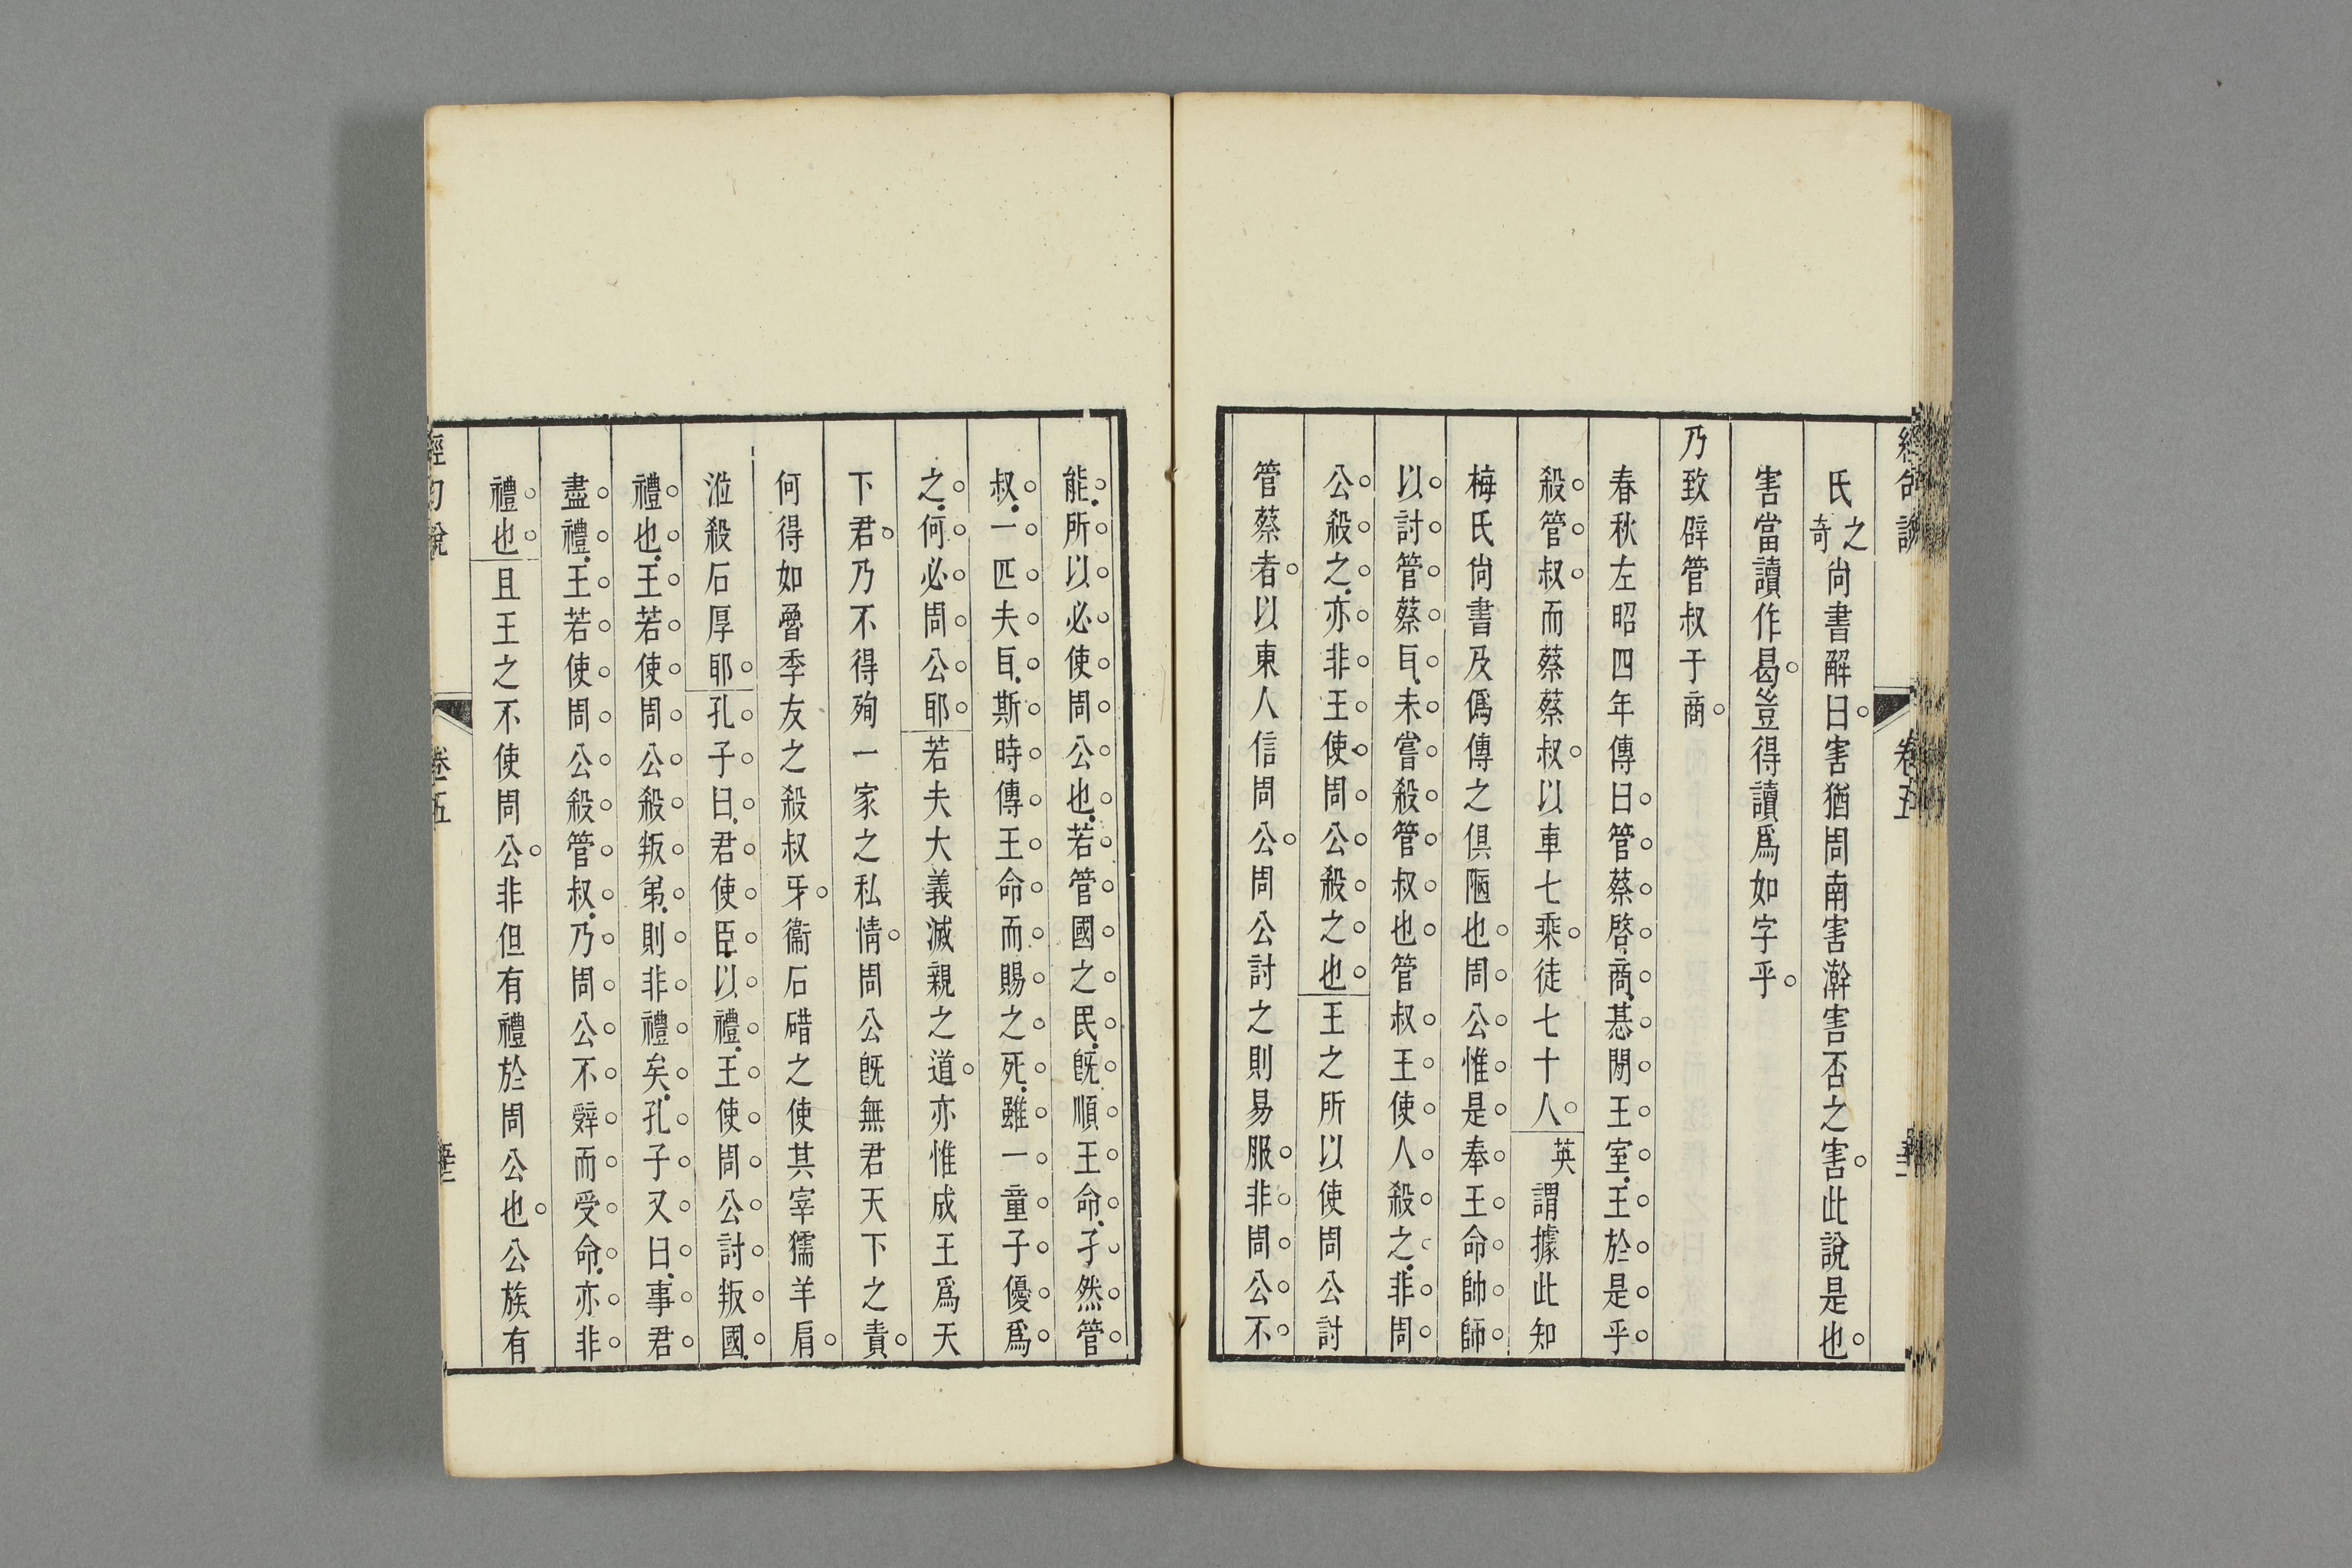 氏之奇尙書解曰害猶周南害澣害否之害此說是也
害當讀作曷豈得讀爲如字乎
乃致辟管叔于商
春秋左昭四年傳曰管蔡啓商惎閒王室王於是乎
殺管叔而蔡蔡叔以車七乘徒七十人英謂據此知
梅氏尙書及僞傳之俱陋也周公惟是奉王命帥師
以討管蔡耳未嘗殺管叔也管叔王使人殺之非周
公殺之亦非王使周公殺之也王之所以使周公討
管蔡者以東人信周公周公討之則易服非周公不
能所以必使周公也若管國之民旣順王命孑然管
叔一匹夫耳斯時傳王命而賜之死雖一童子優爲
之何必周公耶若夫大義滅親之道亦惟成王爲天
下君乃不得殉一家之私情周公旣無君天下之責
何得如魯季友之殺叔牙衞石碏之使其宰獳羊肩
涖殺石厚耶孔子曰君使臣以禮王使周公討叛國
禮也王若使周公殺叛弟則非禮矣孔子又曰事君
盡禮王若使周公殺管叔乃周公不辤而受命亦非
禮也且王之不使周公非但有禮於周公也公族有
經句說
卷五